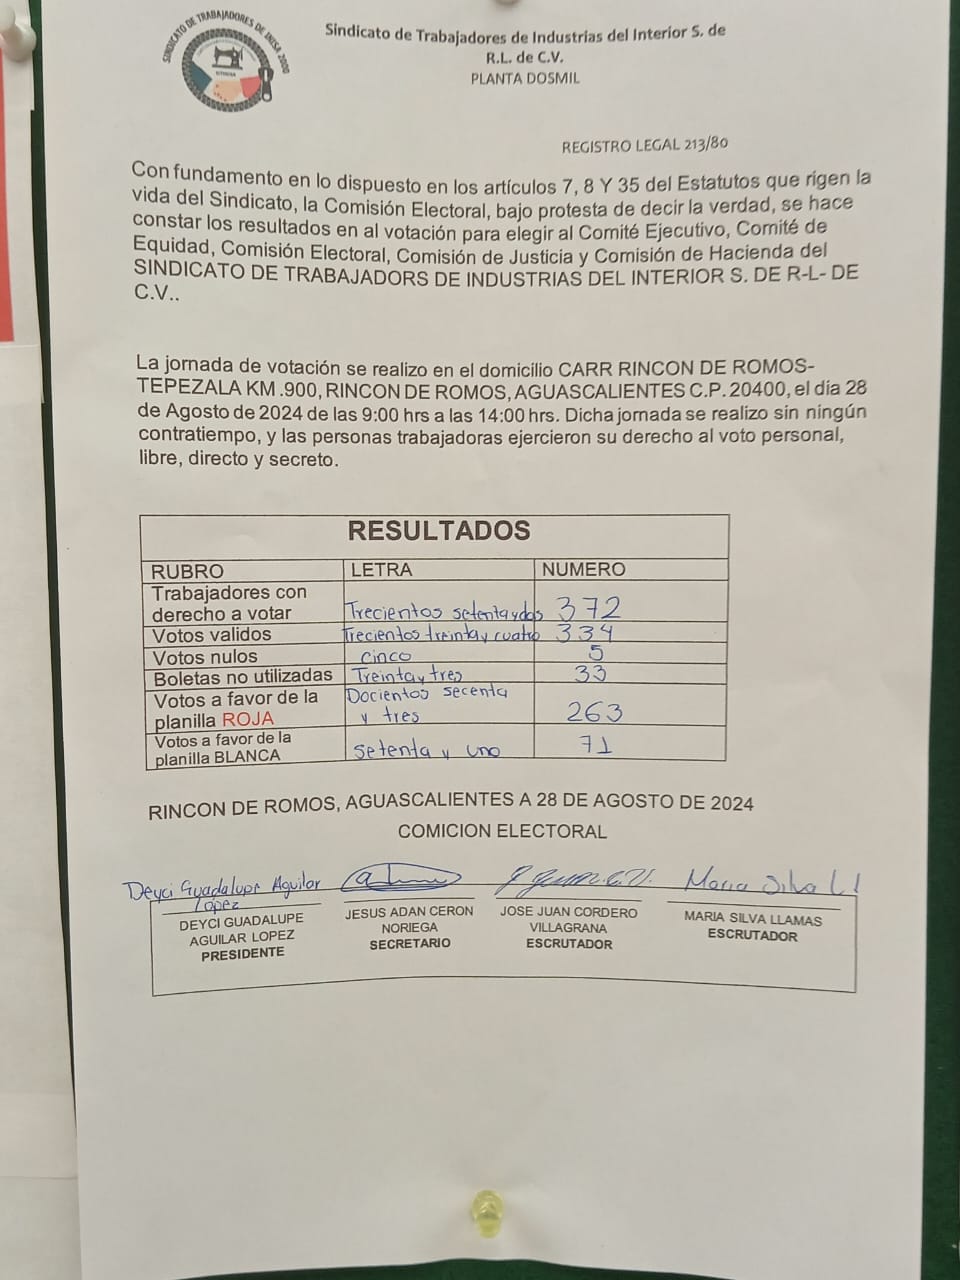 SINDICATO DE TRABAJADORES DE INISA 2000
Sindicato de Trabajadores de Industrias del Interior S. de
R.L. de C.V.
PLANTA DOSMIL
REGISTRO LEGAL 213/80
Con fundamento en lo dispuesto en los artículos 7, 8 Y 35 del Estatutos que rigen la
vida del Sindicato, la Comisión Electoral, bajo protesta de decir la verdad, se hace
constar los resultados en al votación para elegir al Comité Ejecutivo, Comité de
Equidad, Comisión Electoral, Comisión de Justicia y Comisión de Hacienda del
SINDICATO DE TRABAJADORS DE INDUSTRIAS DEL INTERIOR S. DE R-L- DE
C.V..
La jornada de votación se realizo en el domicilio CARR RINCON DE ROMOS-
TEPEZALA KM .900, RINCON DE ROMOS, AGUASCALIENTES C.P. 20400, el día 28
de Agosto de 2024 de las 9:00 hrs a las 14:00 hrs. Dicha jornada se realizo sin ningún
contratiempo, y las personas trabajadoras ejercieron su derecho al voto personal,
libre, directo y secreto.
RESULTADOS
RUBRO LETRA NUMERO
Trabajadores con
derecho a votar Trecientos setenta y dos 372
Votos validos Trecientos treinta y cuatro 334
Votos nulos cinco 5
Boletas no utilizadas Treinta y tres 33
Votos a favor de la Docientos secenta
planilla ROJA y tres 263
Votos a favor de la
planilla BLANCA setenta y uno 71
RINCON DE ROMOS, AGUASCALIENTES A 28 DE AGOSTO DE 2024
COMICION ELECTORAL
Deyci Guadalupe Aguilar Maria Silva Ll
Lopez
DEYCI GUADALUPE JESUS ADAN CERON JOSE JUAN CORDERO MARIA SILVA LLAMAS
AGUILAR LOPEZ NORIEGA VILLAGRANA ESCRUTADOR
PRESIDENTE SECRETARIO ESCRUTADOR